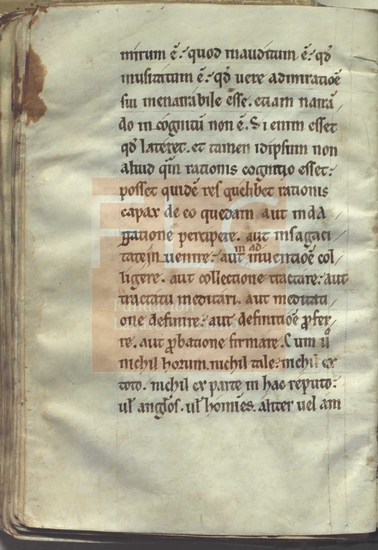 mirum ē. quod inauditum ē. qđ
inusitatum ē. qđ uere admiratiōe
sui inenarrabile esse. etiam narrā
do incognitū non ē. Si enim esset
qđ lateret. et tamen id ipsum non
aliud qm̄ rationis cognitio esset.
posset quidē res quelibet rationis
capax de eo quedam aut indа
gatione percipere. aut in sagaci
tate inuenire. aut inuentiōe col
in ad
ligere. aut collectione tractare. aut
tractatu meditari. aut meditati
one definire. aut definitiōe ꝓfer
re. aut ꝓbatione firmare. Cum ū
nichil horum. nichil tale. nichil ex
toto. nichil ex parte in hac reputo.
ul' angl'os. ul' homīes. aliter uel am
Fundación